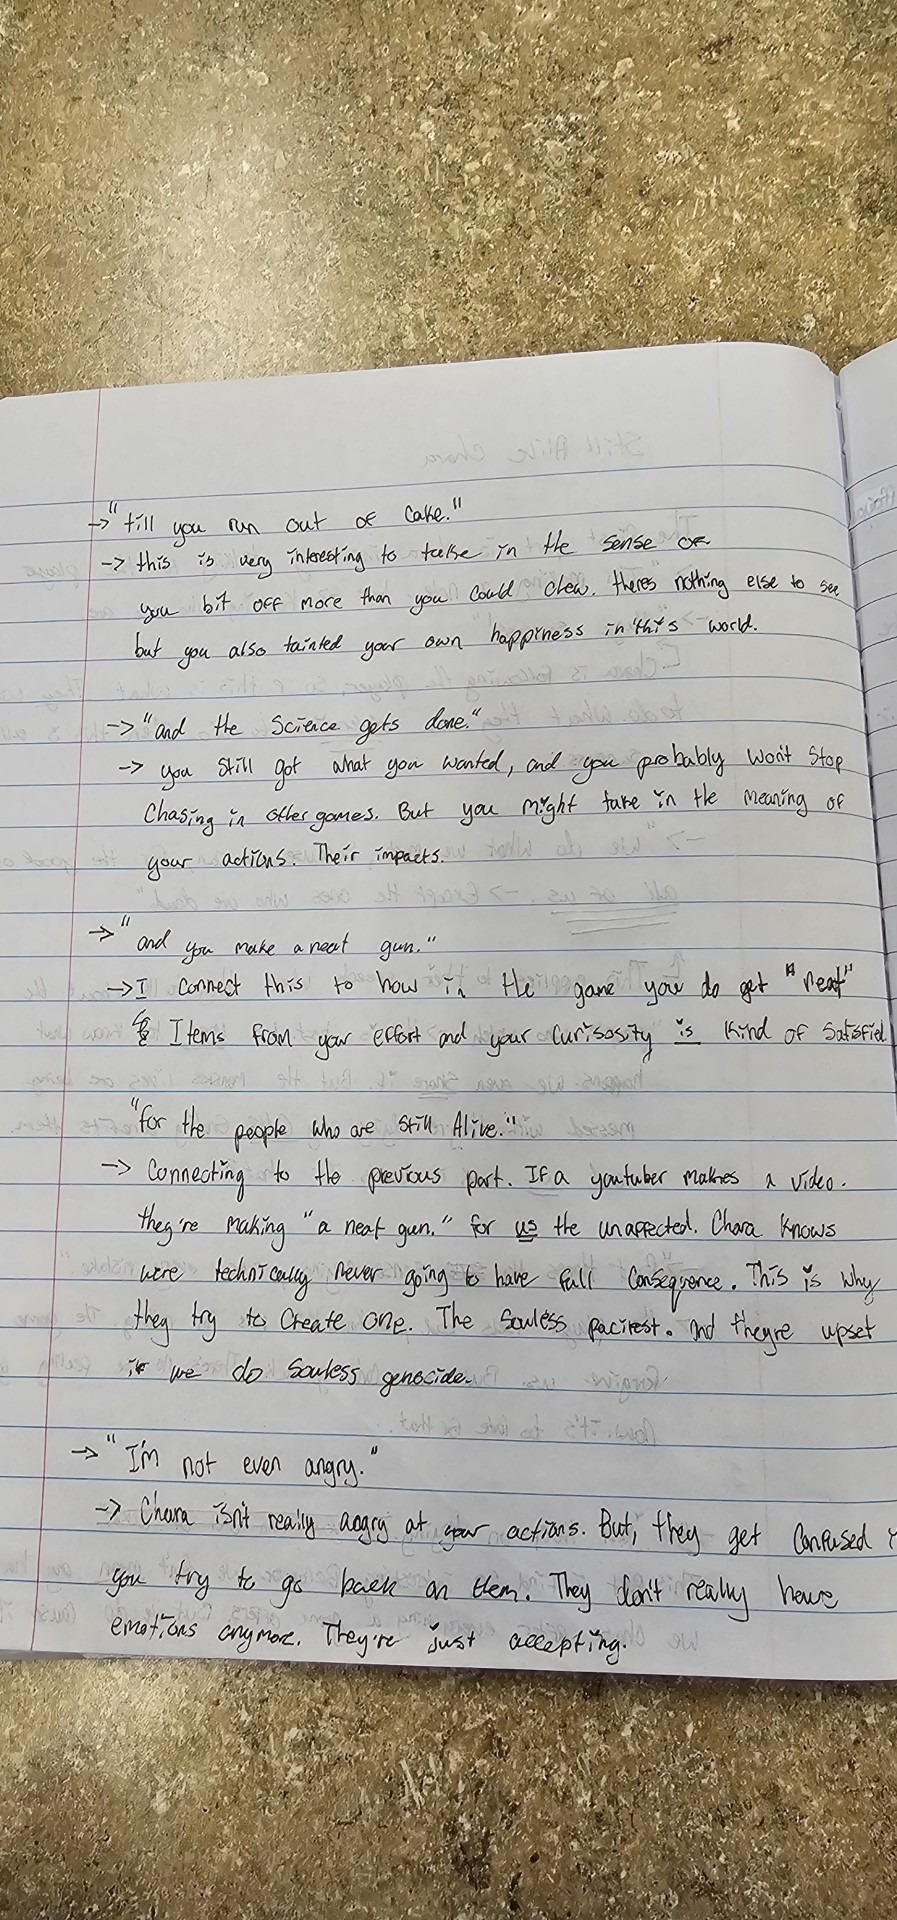 → "till you run out of cake."
→ this is very interesting to take in the sense of
you bit off more than you could chew. theres nothing else to see
but you also tainted your own happiness in this world.
→ "and the Science gets done."
→ you still got what you wanted, and you probably won't stop
Chasing in other games. But you might take in the meaning of
your actions. Their impacts.
→ "and you make a neat gun."
→ I connect this to how in the game you do get "neat"
Items from your effort and your curisosity is kind of satisfied
"for the people who are still Alive."
→ Connecting to the previous part. If a youtuber makes a video.
they're making "a neat gun." for us the unaffected. Chara knows
were technically never going to have full consequence. This is why
they try to create one. The souless pacifest. and theyre upset
if we do souless genocide.
→ "I'm not even angry."
→ Chara isn't really angry at your actions. But, they get confused
you try to go back on them. They don't really have
emotions anymore. They're just accepting.